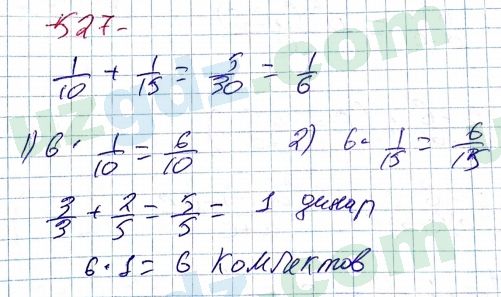 527.
1/10 + 1/15 = 5/30 = 1/6
1) 6 · 1/10 = 6/10 2) 6 · 1/15 = 6/15
3/3 + 2/5 = 5/5 = 1 динар
6 · 1 = 6 комплектов